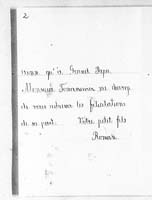 2
qu'à Grand Papa.
Monsieur me charge
de vous adresser les félicitations
de sa part. Votre petit fils
Romain